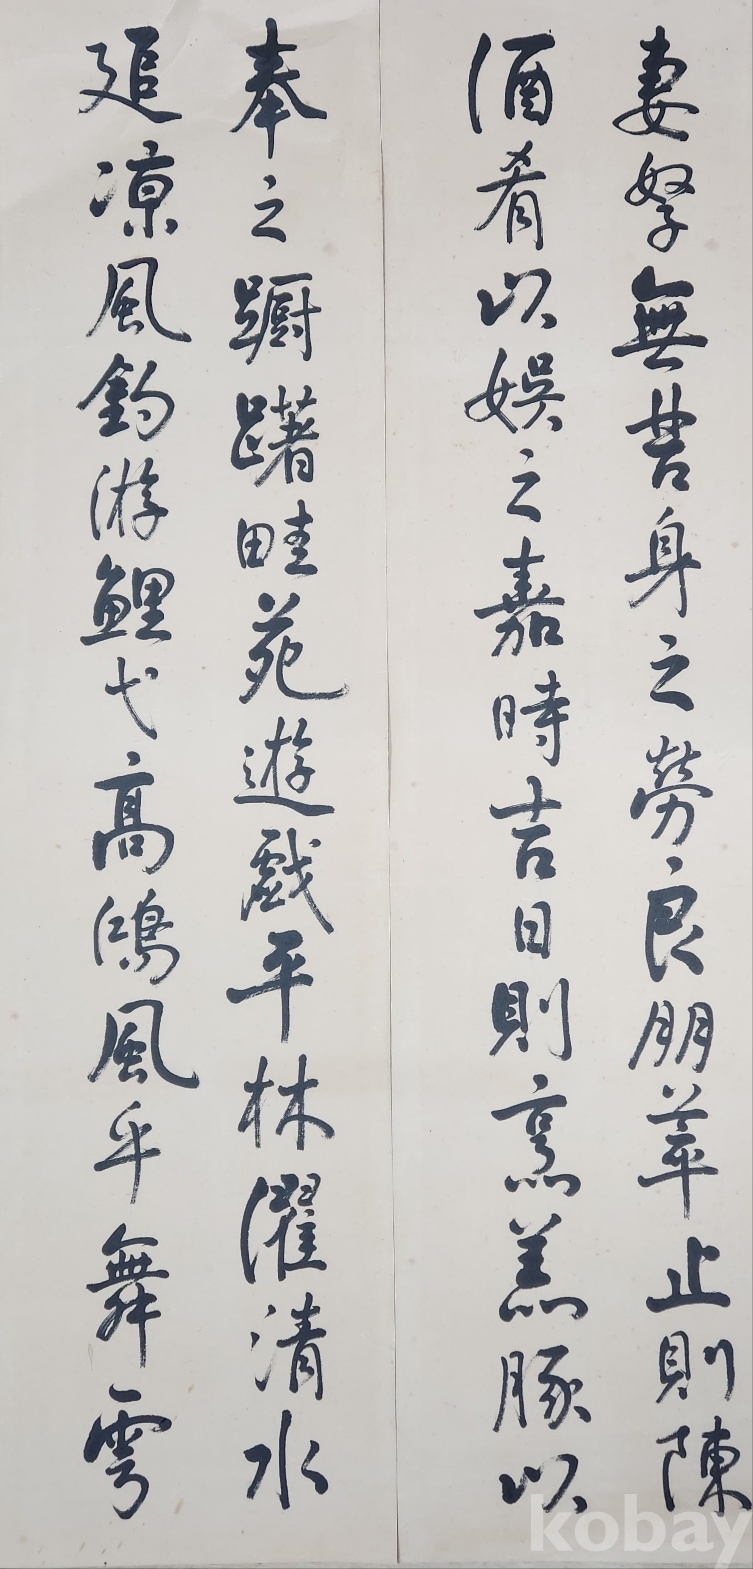 妻孥無苦身之勞良朋萃止則陳
酒肴以娛之嘉時吉日則烹羔豚以
奉之蹰躇畦苑遊戲平林濯清水
追凉風釣游鯉弋高鴻風乎舞雩
kobay